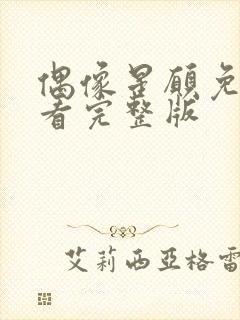 偶像星愿免
看完整版
艾莉西亞格雷